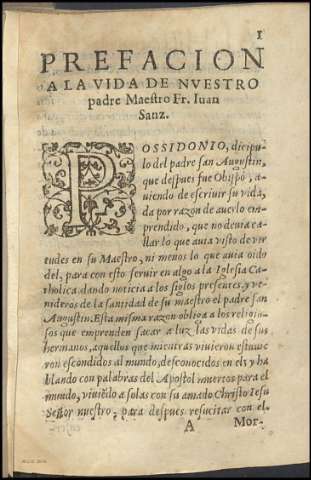 1
PREFACION
A LA VIDA DE NVESTRO
padre Maestro Fr. Iuan
Sanz.
POSSIDONIO, dicipu-
lo del padre san Augustin,
que despues fue Obispo, a-
uiendo de escriuir su vida,
da por razon de auerlo em-
prendido, que no deuia ca-
llar lo que auia visto de vir
tudes en su Maestro, ni menos lo que auia oido
del, para con esto seruir en algo a la Iglesia Ca-
tholica, dando noticia a los siglos presentes, y ve-
nideros de la santidad de su maestro el padre san
Augustin. Esta misma razon obliga a los religio-
sos que emprenden sacar a luz las vidas de sus
hermanos, aquellos que mientras viuieron estuuie
ron escondidos al mundo, desconocidos en el, y ha
blando con palabras del Apostol muertos para el
mundo, viuiēdo a solas con su amado Christo Iesu
Señor nuestro, para despues resucitar con el.
A Mor-